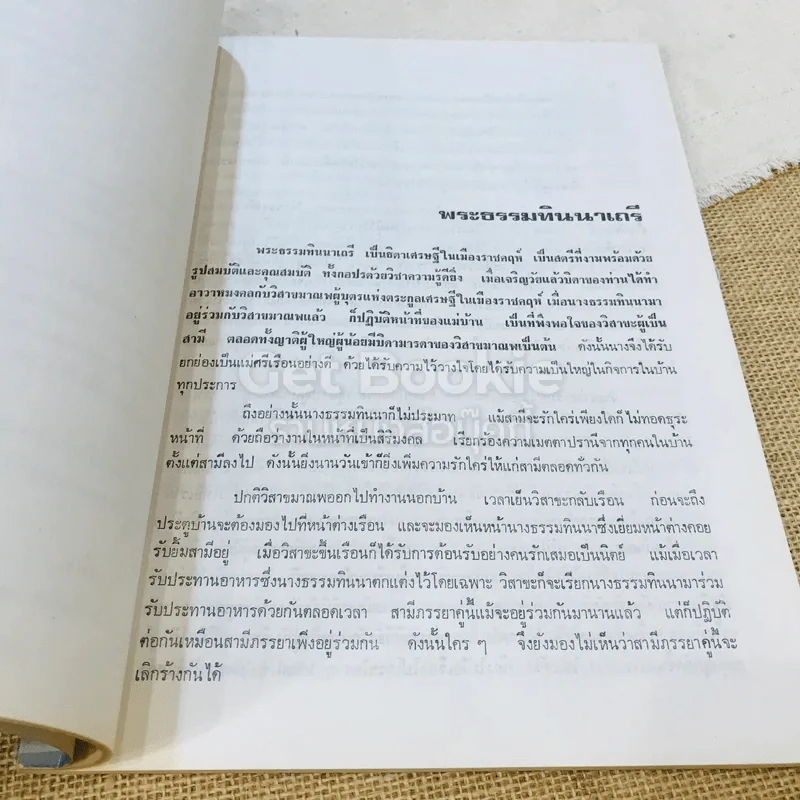 พระธรรมทินนาเถรี
พระธรรมทินนาเถรี เป็นธิดาเศรษฐีในเมืองราชคฤห์ เป็นสตรีที่งามพร้อมด้วย
รูปสมบัติและคุณสมบัติ ทั้งกอปรด้วยวิชาความรู้ดียิ่ง เมื่อเจริญวัยแล้วบิดาของท่านได้ทำ
อาวาหมงคลกับวิสาขมาณพผู้บุตรแห่งตระกูลเศรษฐีในเมืองราชคฤห์ เมื่อนางธรรมทินนามา
อยู่ร่วมกับวิสาขมาณพแล้ว ก็ปฏิบัติหน้าที่ของแม่บ้าน เป็นที่พึงพอใจของวิสาขะผู้เป็น
สามี ตลอดทั้งญาติผู้ใหญ่ผู้น้อยมีบิดามารดาของวิสาขมาณพเป็นต้น ดังนั้นนางจึงได้รับ
ยกย่องเป็นแม่ศรีเรือนอย่างดี ด้วยได้รับความไว้วางใจโดยได้รับความเป็นใหญ่ในกิจการในบ้าน
ทุกประการ
Get Bookie
ถึงอย่างนั้นนางธรรมทินนาก็ไม่ประมาท แม้สามีจะรักใคร่เพียงใดก็ไม่ทอดธุระ
หน้าที่ ด้วยถือว่างานในหน้าที่เป็นสิริมงคล เรียกร้องความเมตตาปรานีจากทุกคนในบ้าน
ตั้งแต่สามีลงไป ดังนั้นยิ่งนานวันเข้าก็ยิ่งเพิ่มความรักใคร่ให้แก่สามีตลอดทั่วกัน
ปกติวิสาขมาณพออกไปทำงานนอกบ้าน เวลาเย็นวิสาขะกลับเรือน ก่อนจะถึง
ประตูบ้านจะต้องมองไปที่หน้าต่างเรือน และจะมองเห็นหน้านางธรรมทินนาซึ่งเยี่ยมหน้าต่างคอย
รับยิ้มสามีอยู่ เมื่อวิสาขะขึ้นเรือนก็ได้รับการต้อนรับอย่างคนรักเสมอเป็นนิตย์ แม้เมื่อเวลา
รับประทานอาหารซึ่งนางธรรมทินนาตกแต่งไว้โดยเฉพาะ วิสาขะก็จะเรียกนางธรรมทินนามาร่วม
รับประทานอาหารด้วยกันตลอดเวลา สามีภรรยาคู่นี้แม้จะอยู่ร่วมกันมานานแล้ว แต่ก็ปฏิบัติ
ต่อกันเหมือนสามีภรรยาเพิ่งอยู่ร่วมกัน ดังนั้นใคร ๆ จึงยังมองไม่เห็นว่าสามีภรรยาคู่นี้จะ
เลิกร้างกันได้